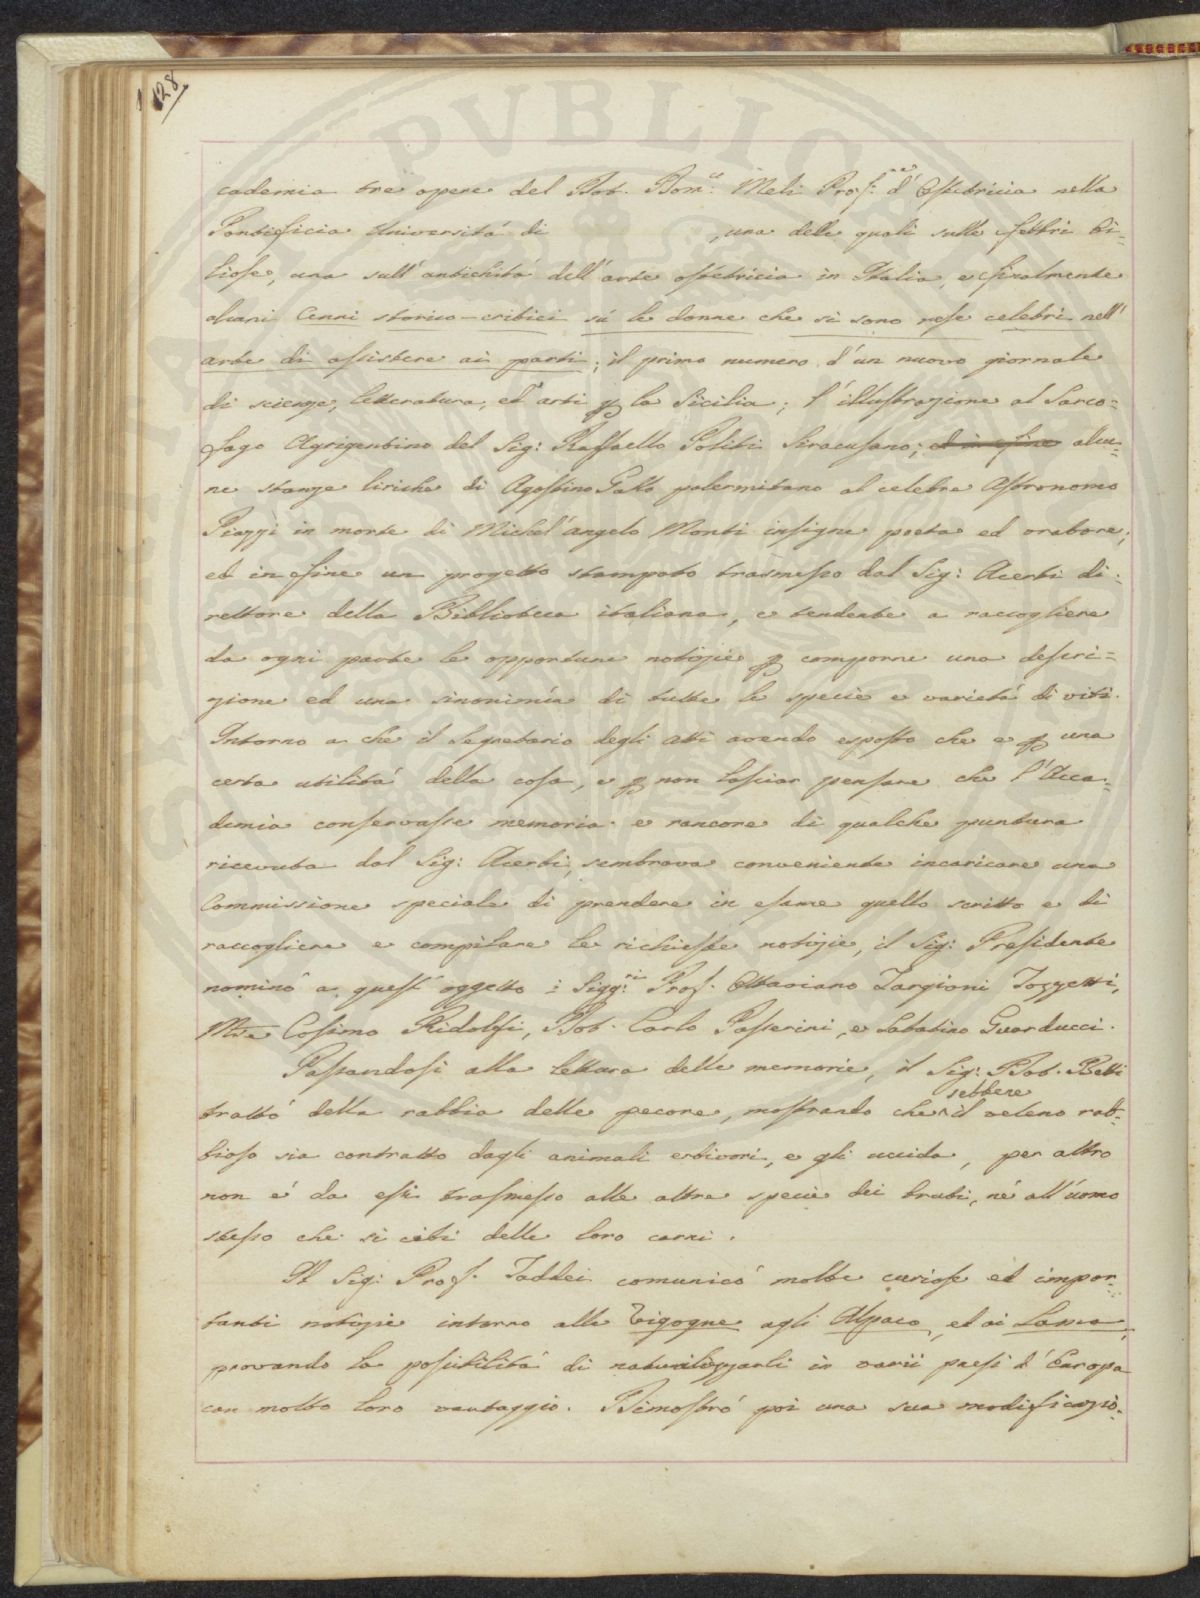 128
cademia tre opere del Dot. Dom.co Meli Prof.re d'Ostetricia nella
Pontificia Università di , una delle quali sulle febbri bi=
liose, una sull'antichità dell'arte ostetricia in Italia, e finalmente
alcuni Cenni storico-critici sù le donne che si sono rese celebri nell'
arte di assistere ai parti; il primo numero d'un nuovo giornale
di scienze, letteratura, ed arti p la Sicilia; l'illustrazione al Sarco=
fago Agrigentino del Sig: Raffaello Politi Siracusano; ed in fine alcu=
ne stanze liriche di Agostino Gallo palermitano al celebre Astronomo
Piazzi in morte di Michel'angelo Monti insigne poeta ed oratore;
ed in fine un progetto stampato trasmesso dal Sig: Acerbi di=
rettore della Biblioteca italiana, e tendente a raccogliere
da ogni parte le opportune notizie p comporre una descri=
zione ed una sinonimía di tutte le specie e varietà di viti.
Intorno a che il Segretario degli Atti avendo esposto che e p una
certa utilità della cosa, e p non lasciar pensare che l'Acca=
demia conservasse memoria e rancore di qualche puntura
ricevuta dal Sig: Acerbi, sembrava conveniente incaricare una
Commissione speciale di prendere in esame quello scritto e di
raccogliere e compilare le richieste notizie, il Sig: Presidente
nominò a quest'oggetto i Sigg:ri Prof. Ottaviano Targioni Tozzetti,
M.se Cosimo Ridolfi, Dot. Carlo Passerini, e Sabatino Guarducci.
Passandosi alla lettura delle memorie, il Sig: Dot. Betti
trattò della rabbia delle pecore, mostrando che sebbene il veleno rab=
bioso sia contratto dagli animali erbivori, e gli uccida, per altro
non è da essi trasmesso alle altre specie dei bruti, nè all'uomo
stesso che si cibi delle loro carni.
Il Sig: Prof. Taddei comunicò molte curiose ed impor=
tanti notizie intorno alle Vigogne agli Alpaco, ed ai Lama,
provando la possibilità di naturalizzarli in varii paesi d'Europa
con molto loro vantaggio. Dimostrò poi una sua modificazio=